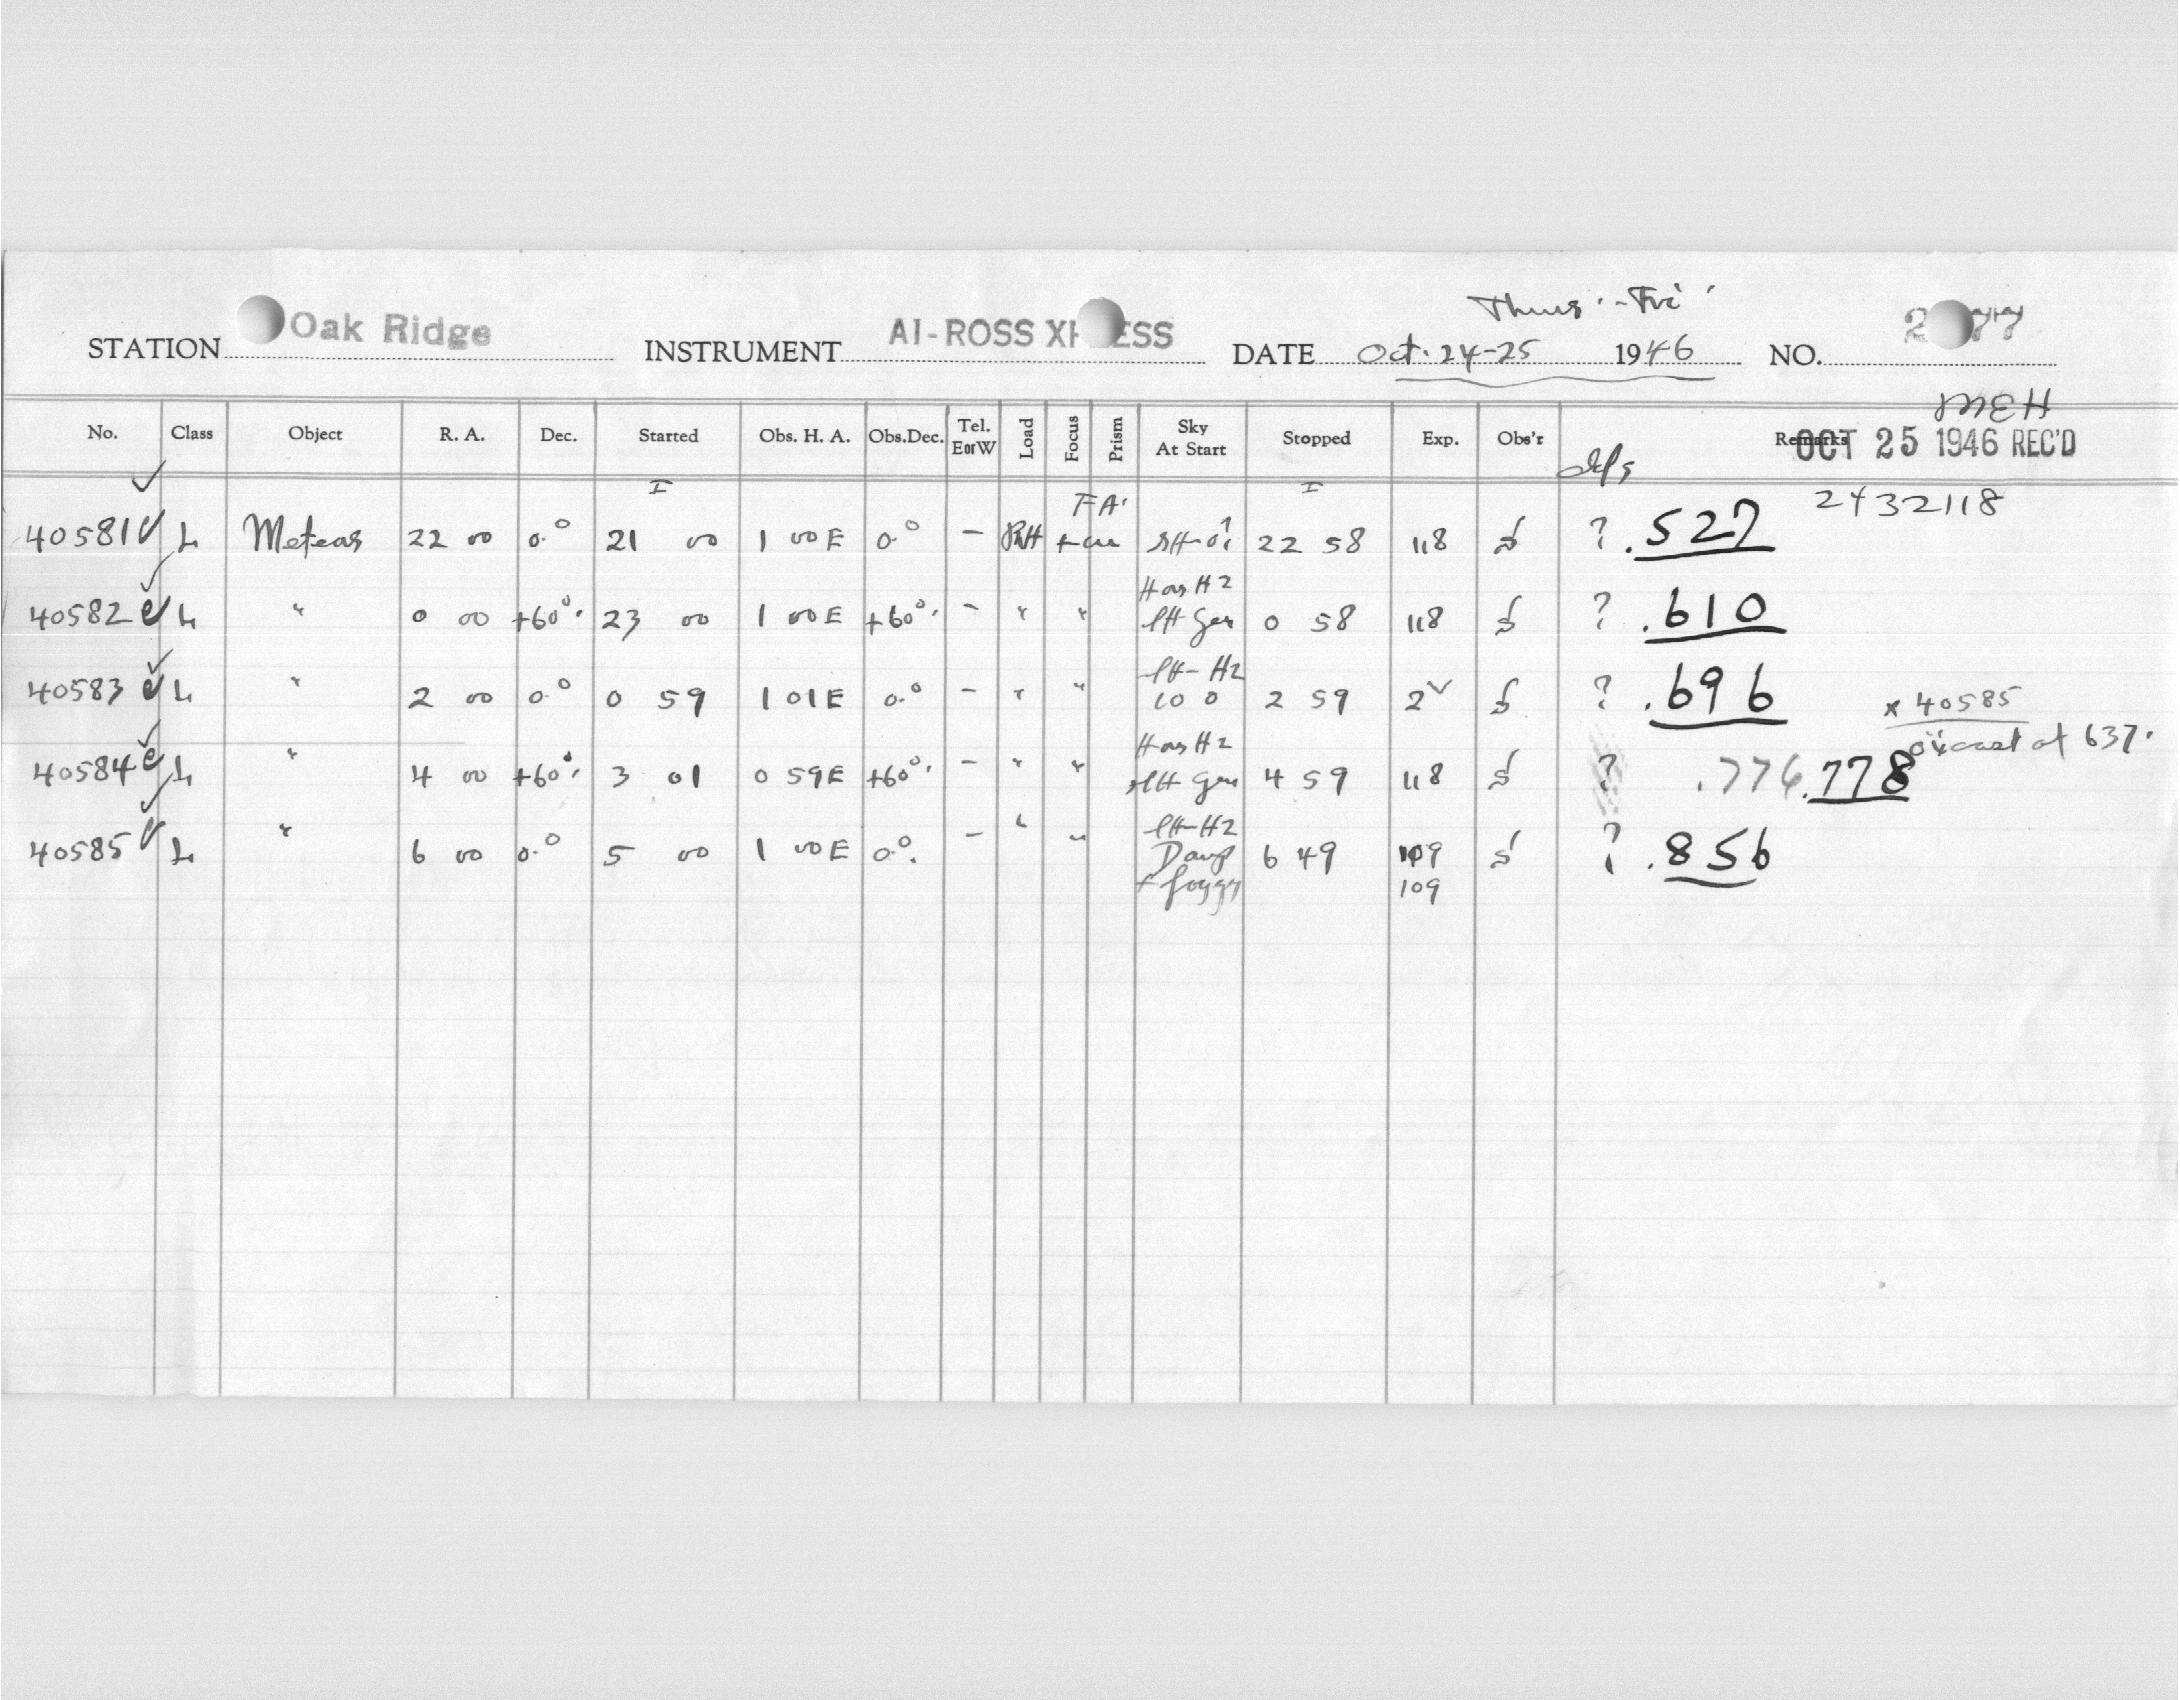 Thurs.-Fri.
STATION Oak Ridge INSTRUMENT AI-ROSS XP ESS DATE Oct. 24-25 1946 NO. 2 77
MEH
No. Class Object R. A. Dec. Started Obs. H. A. Obs.Dec. Tel. EorW Load Focus Prism Sky At Start Stopped Exp. Obs'r Remarks
OCT 25 1946 REC'D
I FA. I 2432118
40581 L Meteors 22 00 0.° 21 00 1 00E 0.° - 22 58 118 ? .527
Has H2
40582 L " 0 00 +60°. 23 00 1 00E +60°. - " " 0 58 118 ? .610
H2
40583 L " 2 00 0.° 0 59 1 01E 0.° - " " 100 2 59 2 ? .696 x 40585
Has H2 at 637.
40584 L " 4 00 +60°. 3 01 0 59E +60°. - " " 4 59 118 ? .776 .778
H2
40585 L " 6 00 0.° 5 00 1 00E 0.° - " " Damp 6 49 109 ? .856
+ foggy 109